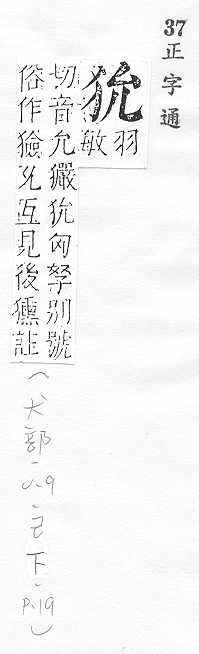 37正字通
狁羽敏
切音允玁狁匈孥別號
俗作獫𠃉互見後獯註
(犬部、巳下、P.19)